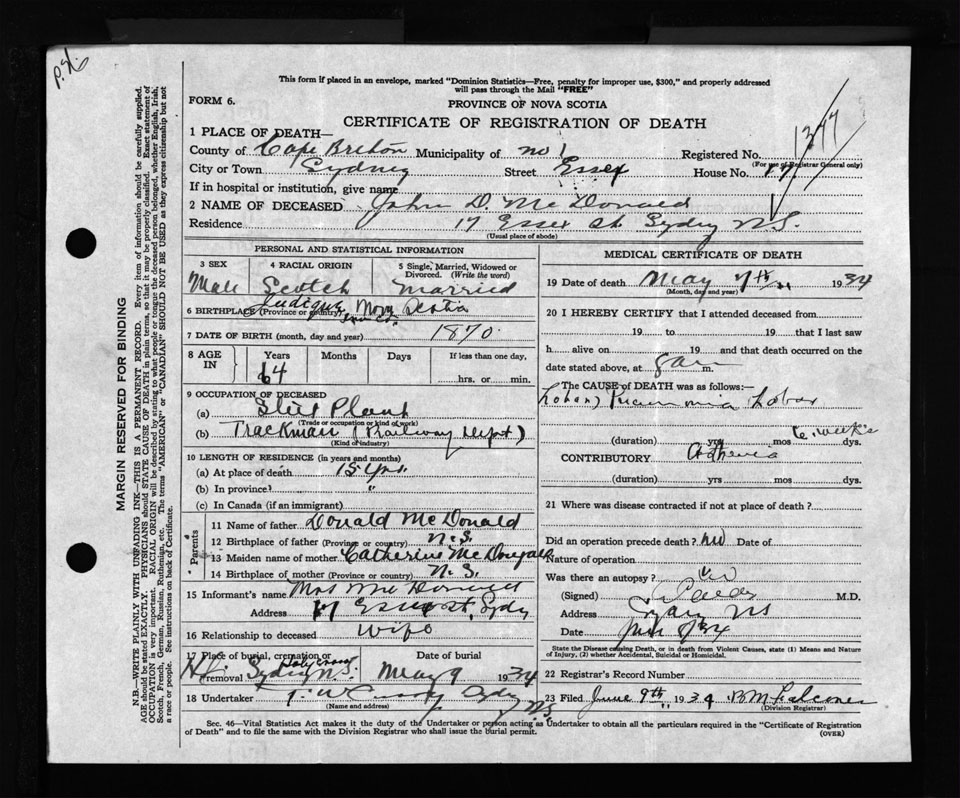 This form if placed in an envelope, marked "Dominion Statistics—Free, penalty for improper use, $300," and properly addressed
will pass through the Mail "FREE"
FORM 6.
PROVINCE OF NOVA SCOTIA
CERTIFICATE OF REGISTRATION OF DEATH
MARGIN RESERVED FOR BINDING
N.B.—WRITE PLAINLY WITH UNFADING INK—THIS IS A PERMANENT RECORD. Every item of information should be carefully supplied.
AGE should be stated EXACTLY. PHYSICIANS should STATE CAUSE OF DEATH in plain terms, so that it may be properly classified. Exact statement of
OCCUPATION is very important. RACIAL ORIGIN will be described by stating to what people or tongue the deceased person belonged, whether English, Irish,
Scotch, French, German, Russian, Ruthenian, etc. The terms "AMERICAN" or "CANADIAN" SHOULD NOT BE USED as they express citizenship but not
a race or people. See instructions on back of Certificate.
1 PLACE OF DEATH—
County of Cape Breton Municipality of Registered No. 1377
(For use of Registrar General only)
City or Town Sydney Street Essex House No. 17
If in hospital or institution, give name
2 NAME OF DECEASED John D. McDonald
Residence 17 Essex St Sydney N.S.
(Usual place of abode)
PERSONAL AND STATISTICAL INFORMATION
3 SEX
Male
4 RACIAL ORIGIN
Scotch
5 Single, Married, Widowed or
Divorced. (Write the word)
Married
6 BIRTHPLACE (Province or country) Judique Nova Scotia
7 DATE OF BIRTH (month, day and year) 1870
8 AGE IN
Years Months Days If less than one day,
64 hrs. or min.
9 OCCUPATION OF DECEASED
(a) Steel Plant
(Trade or occupation or kind of work)
(b) Trackman (Railway Dept)
(Kind of industry)
10 LENGTH OF RESIDENCE (in years and months)
(a) At place of death 15 yrs.
(b) In province "
(c) In Canada (if an immigrant)
Parents
11 Name of father Donald McDonald
12 Birthplace of father (Province or country) N.S.
13 Maiden name of mother Catherine McDougall
14 Birthplace of mother (Province or country) N.S.
15 Informant's name Mrs McDonald
Address 17 Essex St, Sydney
16 Relationship to deceased wife
17 Place of burial, cremation or
removal Sydney N.S.
Date of burial
May 9 1934
18 Undertaker Sydney N.S.
(Name and address)
MEDICAL CERTIFICATE OF DEATH
19 Date of death May 7th 1934
(Month, day and year)
20 I HEREBY CERTIFY that I attended deceased from
19 to 19 that I last saw
h alive on 19 and that death occurred on the
date stated above, at 8 a m.
The CAUSE OF DEATH was as follows:—
Pneumonia Lobar
6 weeks
(duration) yrs mos dys.
CONTRIBUTORY Asthenia
(duration) yrs mos dys.
21 Where was disease contracted if not at place of death?
Did an operation precede death? No Date of
Nature of operation
Was there an autopsy? No
(Signed) M.D.
Address Sydney NS
Date
State the Disease causing Death, or in death from Violent Causes, state (1) Means and Nature
of Injury, (2) whether Accidental, Suicidal or Homicidal.
22 Registrar's Record Number
23 Filed June 9th 1934
(Division Registrar)
Sec. 46—Vital Statistics Act makes it the duty of the Undertaker or person acting as Undertaker to obtain all the particulars required in the "Certificate of Registration
of Death" and to file the same with the Division Registrar who shall issue the burial permit.
(OVER)